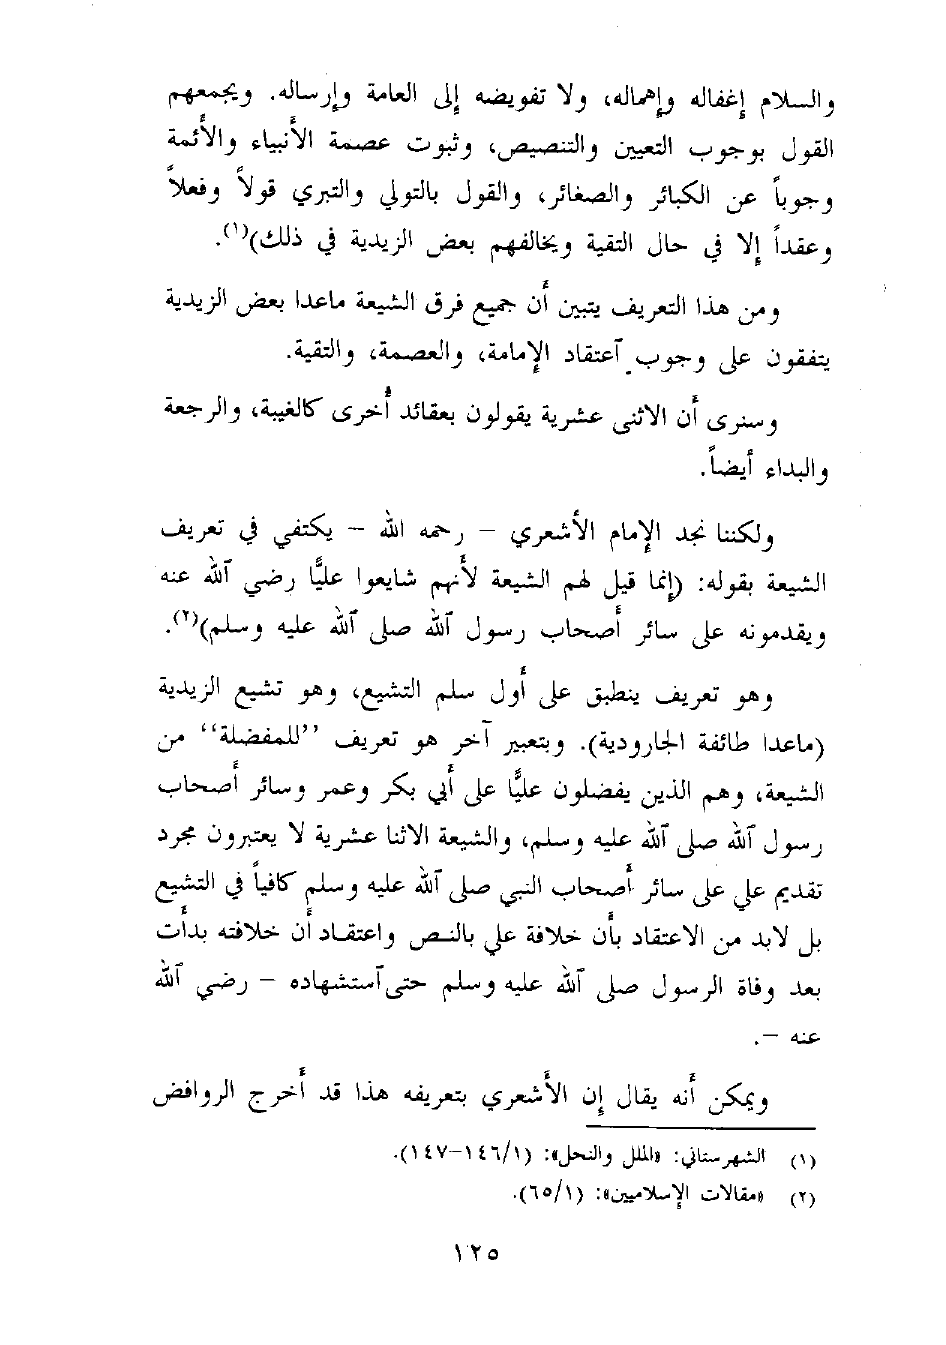 والسلام إغفاله وإهماله، ولا تفويضه إلى العامة وإرساله. ويجمعهم
القول بوجوب التعيين والتنصيص، وثبوت عصمة الأنبياء والأئمة
وجوباً عن الكبائر والصغائر، والقول بالتولي والتبري قولاً وفعلاً
وعقداً إلا في حال التقية ويخالفهم بعض الزيدية في ذلك)(١).
ومن هذا التعريف يتبين أن جميع فرق الشيعة ماعدا بعض الزيدية
يتفقون على وجوب ٱعتقاد الإمامة، والعصمة، والتقية.
وسنرى أن الاثنى عشرية يقولون بعقائد أُخرى كالغيبة، والرجعة
والبداء أيضاً.
ولكننا نجد الإمام الأشعري – رحمه الله – يكتفي في تعريف
الشيعة بقوله: (إنما قيل لهم الشيعة لأنهم شايعوا عليًّا رضي ٱلله عنه
ويقدمونه على سائر أصحاب رسول ٱلله صلى ٱلله عليه وسلم)(٢).
وهو تعريف ينطبق على أول سلم التشيع، وهو تشيع الزيدية
(ماعدا طائفة الجارودية). وبتعبير آخر هو تعريف ’’للمفضلة‘‘ من
الشيعة، وهم الذين يفضلون عليًّا على أبي بكر وعمر وسائر أصحاب
رسول ٱلله صلى ٱلله عليه وسلم، والشيعة الاثنا عشرية لا يعتبرون مجرد
تقديم علي على سائر أصحاب النبي صلى ٱلله عليه وسلم كافياً في التشيع
بل لابد من الاعتقاد بأن خلافة علي بالنص واعتقاد أن خلافته بدأت
بعد وفاة الرسول صلى ٱلله عليه وسلم حتى ٱستشهاده – رضي ٱلله
عنه –.
ويمكن أنه يقال إن الأشعري بتعريفه هذا قد أخرج الروافض
(١) الشهرستاني: «الملل والنحل»: (١/١٤٦–١٤٧).
(٢) «مقالات الإسلاميين»: (١/٦٥).
١٢٥